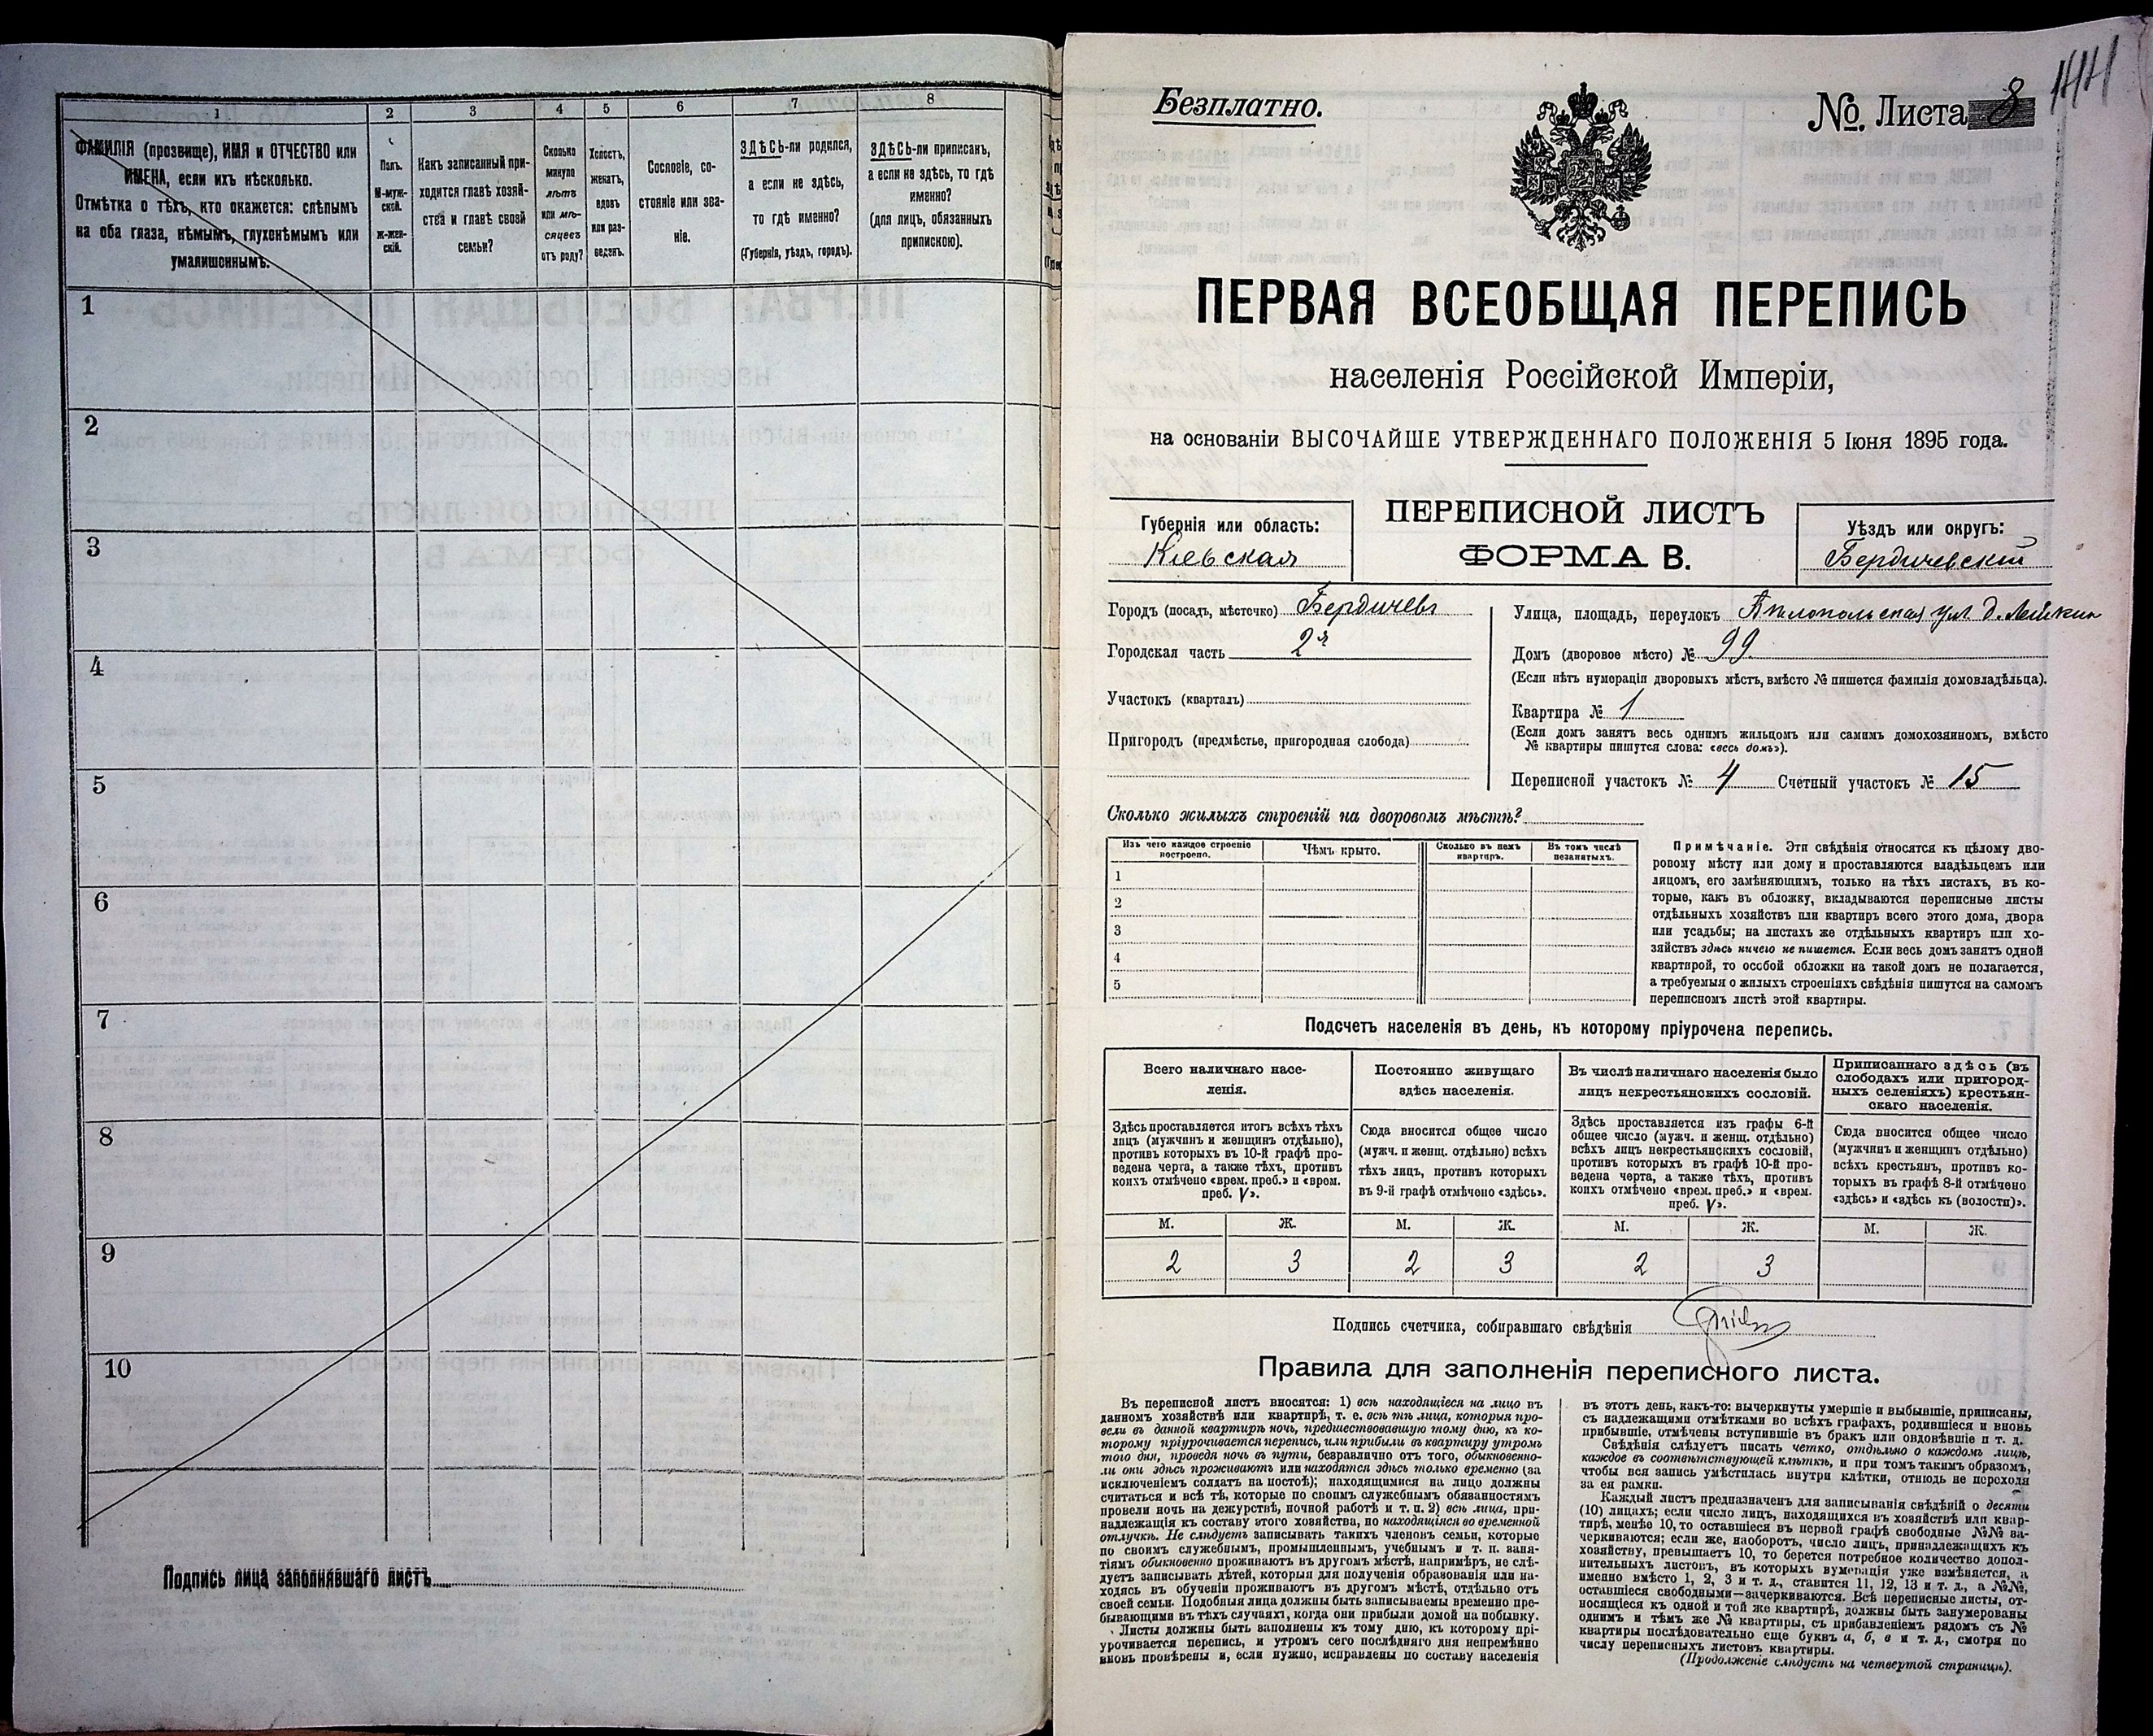 1
2
3
4
5
6
7
8
ФАМИЛІЯ (прозвище), ИМЯ и ОТЧЕСТВО или
ИМЕНА, если ихъ нѣсколько.
Отмѣтка о тѣхъ, кто окажется: слѣпымъ
на оба глаза, нѣмымъ, глухонѣмымъ или
умалишеннымъ.
Полъ.
М-муж-
ской.
Ж-жен-
скій.
Какъ записанный при-
ходится главѣ хозяй-
ства и главѣ своей
семьи?
Сколько
минуло
лѣтъ
или мѣ-
сяцевъ
отъ роду?
Холостъ,
женатъ,
вдовъ
или раз-
веденъ.
Сословіе, со-
стояніе или зва-
ніе.
ЗДѢСЬ-ли родился,
а если не здѣсь,
то гдѣ именно?
(Губернія, уѣздъ, городъ).
ЗДѢСЬ-ли приписанъ,
а если не здѣсь, то гдѣ
именно?
(для лицъ, обязанныхъ
припискою).
1
2
3
4
5
6
7
8
9
10
Подпись лица заполнявшаго листъ
Безплатно.
№ Листа 8
144
ПЕРВАЯ ВСЕОБЩАЯ ПЕРЕПИСЬ
населенія Россійской Имперіи,
на основаніи ВЫСОЧАЙШЕ УТВЕРЖДЕННАГО ПОЛОЖЕНІЯ 5 Іюня 1895 года.
Губернія или область:
Кіевская
ПЕРЕПИСНОЙ ЛИСТЪ
ФОРМА В.
Уѣздъ или округъ:
Бердичевскій
Городъ (посадъ, мѣстечко) Бердичевъ
Городская часть 2я
Участокъ (кварталъ)
Пригородъ (предмѣстье, пригородная слобода)
Улица, площадь, переулокъ Бѣлопольская ул. д. Лейкин
Домъ (дворовое мѣсто) № 99
(Если нѣтъ нумораціи дворовыхъ мѣстъ, вмѣсто № пишется фамилія домовладѣльца).
Квартира № 1
(Если домъ занятъ весь однимъ жильцомъ или самимъ домохозяиномъ, вмѣсто
№ квартиры пишутся слова: «весь домъ»).
Переписной участокъ № 4 Счетный участокъ № 15
Сколько жилыхъ строеній на дворовомъ мѣстѣ?
Изъ чего каждое строеніе
построено.
Чѣмъ крыто.
Сколько въ немъ
квартиръ.
Въ томъ числѣ
незанятыхъ.
1
2
3
4
5
Примѣчаніе. Эти свѣдѣнія относятся къ цѣлому дво-
ровому мѣсту или дому и проставляются владѣльцемъ или
лицомъ, его замѣняющимъ, только на тѣхъ листахъ, въ ко-
торые, какъ въ обложку, вкладываются переписные листы
отдѣльныхъ хозяйствъ или квартиръ всего этого дома, двора
или усадьбы; на листахъ же отдѣльныхъ квартиръ или хо-
зяйствъ здѣсь ничего не пишется. Если весь домъ занятъ одной
квартирой, то особой обложки на такой домъ не полагается,
а требуемыя о жилыхъ строеніяхъ свѣдѣнія пишутся на самомъ
переписномъ листѣ этой квартиры.
Подсчетъ населенія въ день, къ которому пріурочена перепись.
Всего наличнаго насе-
ленія.
Постоянно живущаго
здѣсь населенія.
Въ числѣ наличнаго населенія было
лицъ некрестьянскихъ сословій.
Приписаннаго здѣсь (въ
слободахъ или пригород-
ныхъ селеніяхъ) крестьян-
скаго населенія.
Здѣсь проставляется итогъ всѣхъ тѣхъ
лицъ (мужчинъ и женщинъ отдѣльно),
противъ которыхъ въ 10-й графѣ про-
ведена черта, а также тѣхъ, противъ
коихъ отмѣчено «врем. преб.» и «врем.
преб. V».
Сюда вносится общее число
(мужч. и женщ. отдѣльно) всѣхъ
тѣхъ лицъ, противъ которыхъ
въ 9-й графѣ отмѣчено «здѣсь».
Здѣсь проставляется изъ графы 6-й
общее число (мужч. и женщ. отдѣльно)
всѣхъ лицъ некрестьянскихъ сословій,
противъ которыхъ въ графѣ 10-й про-
ведена черта, а также тѣхъ, противъ
коихъ отмѣчено «врем. преб.» и «врем.
преб. V».
Сюда вносится общее число
(мужчинъ и женщинъ отдѣльно)
всѣхъ крестьянъ, противъ ко-
торыхъ въ графѣ 8-й отмѣчено
«здѣсь» и «здѣсь къ (волости)».
М. Ж. М. Ж. М. Ж. М. Ж.
2 3 2 3 2 3
Подпись счетчика, собиравшаго свѣдѣнія
Правила для заполненія переписного листа.
Въ переписной листъ вносятся: 1) всѣ находящіеся на лицо въ
данномъ хозяйствѣ или квартирѣ, т. е. всѣ тѣ лица, которыя про-
вели въ данной квартирѣ ночь, предшествовавшую тому дню, къ ко-
торому пріурочивается перепись, или прибыли въ квартиру утромъ
того дня, проведя ночь въ пути, безразлично отъ того, обыкновенно-
ли они здѣсь проживаютъ или находятся здѣсь только временно (за
исключеніемъ солдатъ на постоѣ); находящимися на лицо должны
считаться и всѣ тѣ, которые по своимъ служебнымъ обязанностямъ
провели ночь на дежурствѣ, ночной работѣ и т. п. 2) всѣ лица, при-
надлежащія къ составу этого хозяйства, но находящіяся во временной
отлучкѣ. Не слѣдуетъ записывать такихъ членовъ семьи, которые
по своимъ служебнымъ, промышленнымъ, учебнымъ и т. п. заня-
тіямъ обыкновенно проживаютъ въ другомъ мѣстѣ, напримѣръ, не слѣ-
дуетъ записывать дѣтей, которыя для полученія образованія или на-
ходясь въ обученіи проживаютъ въ другомъ мѣстѣ, отдѣльно отъ
своей семьи. Подобныя лица должны быть записываемы временно пре-
бывающими въ тѣхъ случаяхъ, когда они прибыли домой на побывку.
Листы должны быть заполнены къ тому дню, къ которому прі-
урочивается перепись, и утромъ сего послѣдняго дня непремѣнно
вновь провѣрены и, если нужно, исправлены по составу населенія
въ этотъ день, какъ-то: вычеркнуты умершіе и выбывшіе, приписаны,
съ надлежащими отмѣтками во всѣхъ графахъ, родившіеся и вновь
прибывшіе, отмѣчены вступившіе въ бракъ или овдовѣвшіе и т. д.
Свѣдѣнія слѣдуетъ писать четко, отдѣльно о каждомъ лицѣ,
каждое въ соотвѣтствующей клѣткѣ, и при томъ такимъ образомъ,
чтобы вся запись умѣстилась внутри клѣтки, отнюдь не переходя
за ея рамки.
Каждый листъ предназначенъ для записыванія свѣдѣній о десяти
(10) лицахъ; если число лицъ, находящихся въ хозяйствѣ или квар-
тирѣ, менѣе 10, то оставшіеся въ первой графѣ свободные №№ за-
черкиваются; если же, наоборотъ, число лицъ, принадлежащихъ къ
хозяйству, превышаетъ 10, то берется потребное количество допол-
нительныхъ листовъ, въ которыхъ нумерація уже измѣняется, а
именно вмѣсто 1, 2, 3 и т. д., ставится 11, 12, 13 и т. д., а №№,
оставшіеся свободными—зачеркиваются. Всѣ переписные листы, от-
носящіеся къ одной и той же квартирѣ, должны быть занумерованы
однимъ и тѣмъ же № квартиры, съ прибавленіемъ рядомъ съ №
квартиры послѣдовательно еще буквъ а, б, в и т. д., смотря по
числу переписныхъ листовъ квартиры.
(Продолженіе слѣдуетъ на четвертой страницѣ).